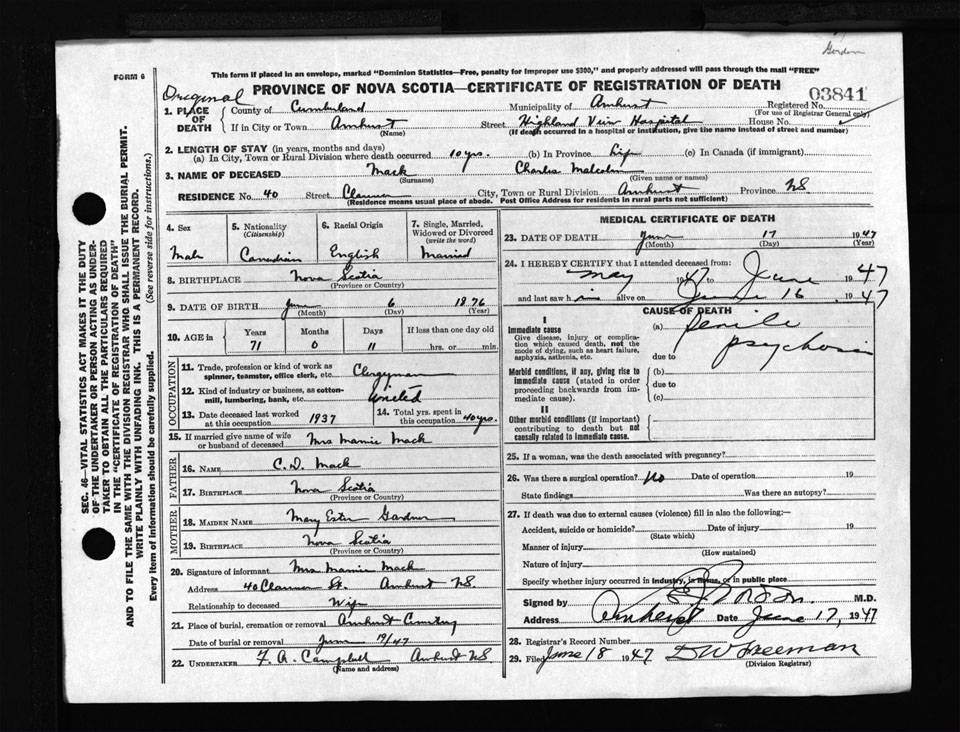 Gordon
FORM 6
This form if placed in an envelope, marked "Dominion Statistics—Free, penalty for improper use $300," and properly addressed will pass through the mail "FREE"
PROVINCE OF NOVA SCOTIA—CERTIFICATE OF REGISTRATION OF DEATH
Original
03841
1. PLACE OF DEATH
County of Cumberland Municipality of Amherst Registered No.
(For use of Registrar General only)
If in City or Town Amherst Street Highland View Hospital House No.
(Name) (If death occurred in a hospital or institution, give the name instead of street and number)
2. LENGTH OF STAY (in years, months and days)
(a) In City, Town or Rural Division where death occurred 10 yrs. (b) In Province Life (c) In Canada (if immigrant)
3. NAME OF DECEASED Mack Charles Malcolm
(Surname) (Given name or names)
RESIDENCE No. 40 Street City, Town or Rural Division Amherst Province NS
(Residence means usual place of abode. Post Office Address for residents in rural parts not sufficient)
4. Sex
Male
5. Nationality (Citizenship)
Canadian
6. Racial Origin
English
7. Single, Married, Widowed or Divorced (write the word)
Married
8. BIRTHPLACE Nova Scotia
(Province or Country)
9. DATE OF BIRTH June 6 1876
(Month) (Day) (Year)
10. AGE in Years Months Days If less than one day old
71 0 11 hrs. or min.
OCCUPATION
11. Trade, profession or kind of work as spinner, teamster, office clerk, etc. Clergyman
12. Kind of industry or business, as cotton-mill, lumbering, bank, etc. United
13. Date deceased last worked at this occupation 1937
14. Total yrs. spent in this occupation 40 yrs.
15. If married give name of wife or husband of deceased Mrs Mamie Mack
FATHER
16. NAME C. D. Mack
17. BIRTHPLACE Nova Scotia
(Province or Country)
MOTHER
18. MAIDEN NAME Mary Ester Gardner
19. BIRTHPLACE Nova Scotia
(Province or Country)
20. Signature of informant Mrs. Mamie Mack
Address 40 St. Amherst NS.
Relationship to deceased Wife
21. Place of burial, cremation or removal Amherst Cemetery
Date of burial or removal June 19/47
22. UNDERTAKER F. A. Campbell Amherst NS
(Name and address)
MEDICAL CERTIFICATE OF DEATH
23. DATE OF DEATH June 17 1947
(Month) (Day) (Year)
24. I HEREBY CERTIFY that I attended deceased from:
May 1947 to June 1947
and last saw him alive on June 16 1947
CAUSE OF DEATH
I
Immediate cause
Give disease, injury or complication which caused death, not the mode of dying, such as heart failure, asphyxia, asthenia, etc.
(a) Senile psychosis
due to
Morbid conditions, if any, giving rise to immediate cause (stated in order proceeding backwards from immediate cause).
(b)
due to
(c)
II
Other morbid conditions (if important) contributing to death but not causally related to immediate cause.
25. If a woman, was the death associated with pregnancy?
26. Was there a surgical operation? No Date of operation 19
State findings Was there an autopsy?
27. If death was due to external causes (violence) fill in also the following:—
Accident, suicide or homicide? Date of injury 19
(State which)
Manner of injury
(How sustained)
Nature of injury
Specify whether injury occurred in industry, in home, or in public place
Signed by Gordon M.D.
Address Amherst Date June 17, 1947
28. Registrar's Record Number
29. Filed June 18 1947 D W Freeman
(Division Registrar)
SEC. 46—VITAL STATISTICS ACT MAKES IT THE DUTY
OF THE UNDERTAKER OR PERSON ACTING AS UNDER-
TAKER TO OBTAIN ALL THE PARTICULARS REQUIRED
IN THE "CERTIFICATE OF REGISTRATION OF DEATH"
AND TO FILE THE SAME WITH THE DIVISION REGISTRAR WHO SHALL ISSUE THE BURIAL PERMIT.
WRITE PLAINLY WITH UNFADING INK. THIS IS A PERMANENT RECORD.
Every item of information should be carefully supplied. (See reverse side for instructions.)